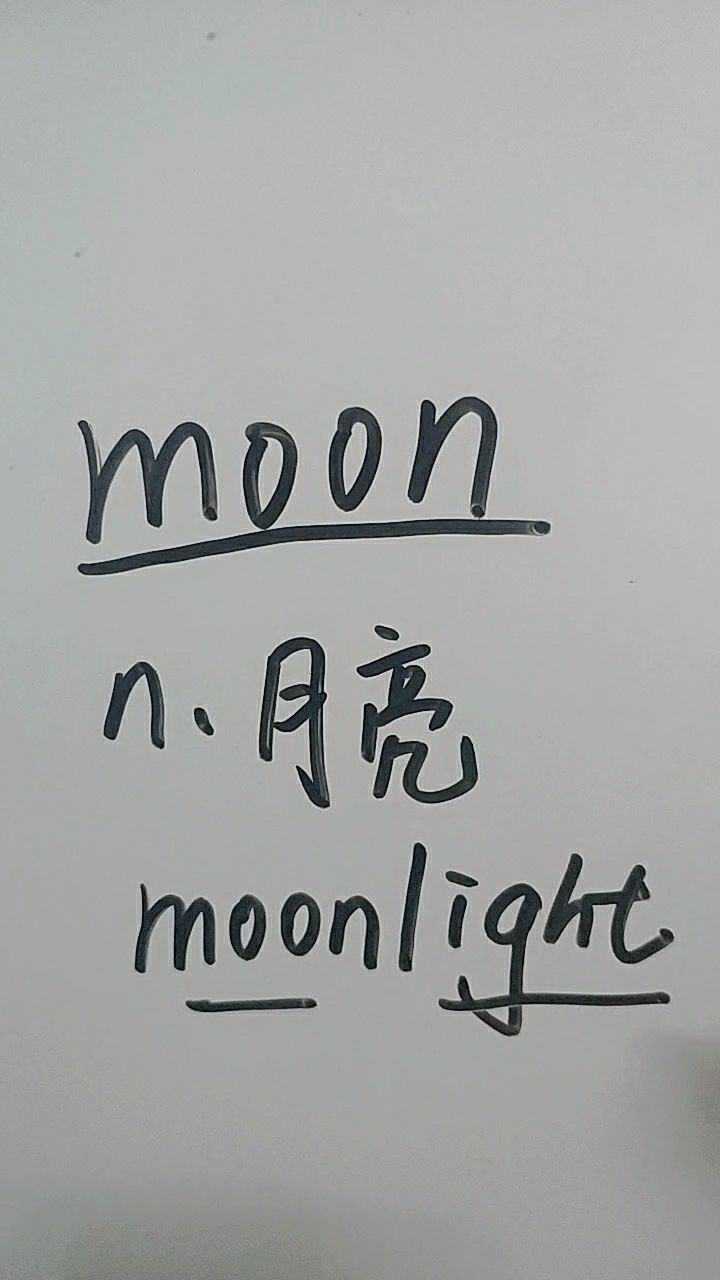 moon
n.月亮
moonlight